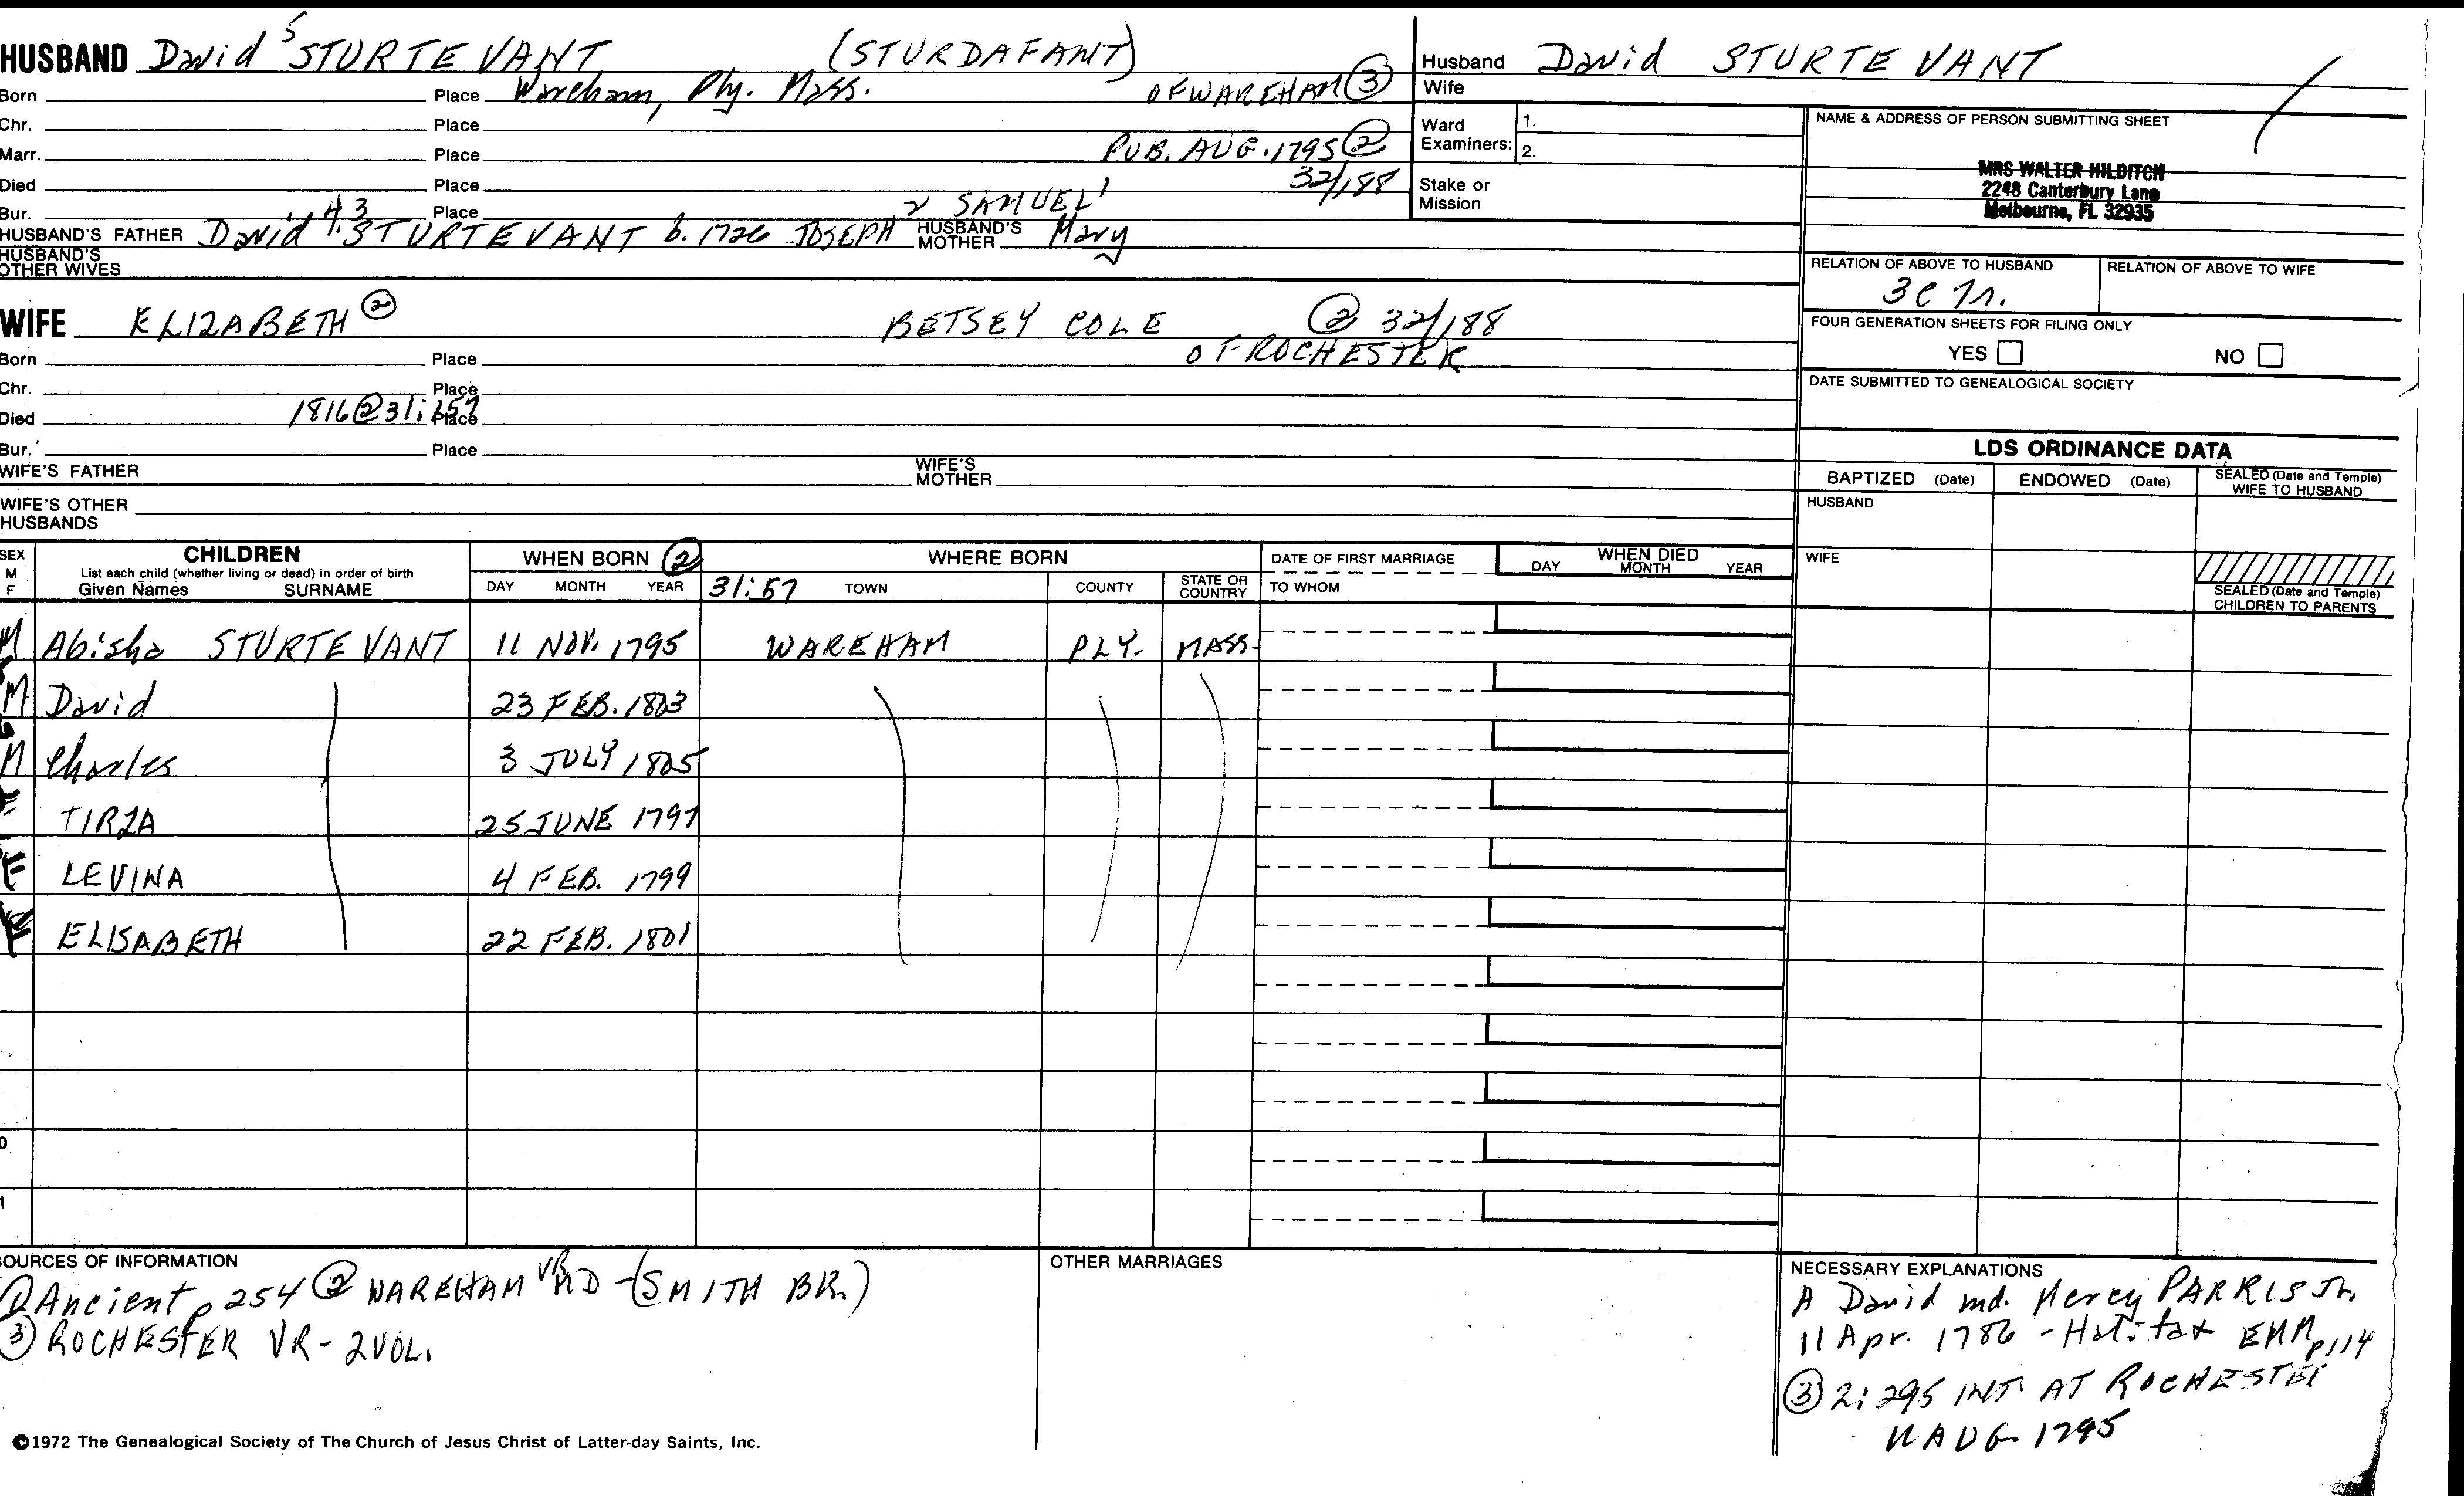 HUSBAND David 5 STURTEVANT (STURDAFANT)
Born Place Wareham, Ply. Mass. OF WAREHAM ③
Chr. Place
Marr. Place PUB. AUG. 1795 ②
Died Place 32/188
Bur. Place
HUSBAND'S FATHER David 4 STURTEVANT b. 1726 3 JOSEPH 2 SAMUEL 1 HUSBAND'S MOTHER Mary
HUSBAND'S OTHER WIVES
WIFE ELIZABETH ② BETSEY COLE ② 32/188
Born Place OF ROCHESTER
Chr. Place
Died 1816 ② 31:157 Place
Bur. Place
WIFE'S FATHER WIFE'S MOTHER
WIFE'S OTHER HUSBANDS
Husband David STURTEVANT
Wife
Ward Examiners: 1.
2.
Stake or Mission
NAME & ADDRESS OF PERSON SUBMITTING SHEET
MRS WALTER HILDITCH
2248 Canterbury Lane
Melbourne, FL 32935
RELATION OF ABOVE TO HUSBAND RELATION OF ABOVE TO WIFE
FOUR GENERATION SHEETS FOR FILING ONLY
YES NO
DATE SUBMITTED TO GENEALOGICAL SOCIETY
LDS ORDINANCE DATA
BAPTIZED (Date) ENDOWED (Date) SEALED (Date and Temple) WIFE TO HUSBAND
HUSBAND
WIFE
SEALED (Date and Temple) CHILDREN TO PARENTS
SEX M F CHILDREN WHEN BORN ② WHERE BORN DATE OF FIRST MARRIAGE WHEN DIED
List each child (whether living or dead) in order of birth
Given Names SURNAME DAY MONTH YEAR 31:57 TOWN COUNTY STATE OR COUNTRY TO WHOM DAY MONTH YEAR
M Abisha STURTEVANT 11 NOV. 1795 WAREHAM PLY. MASS.
M David 23 FEB. 1803
M Charles 3 JULY 1805
F TIRZA 25 JUNE 1797
F LEVINA 4 FEB. 1799
F ELISABETH 22 FEB. 1801
0
1
SOURCES OF INFORMATION
① Ancient p 254 ② WAREHAM VR MD - (SMITH BK.)
③ ROCHESTER VR - 2 VOL.
OTHER MARRIAGES
NECESSARY EXPLANATIONS
A David md. Mercy PARRIS Jr.
11 Apr. 1786 - Halifax EMM p 114
③ 2:295 INT AT ROCHESTER
AUG. 1795
©1972 The Genealogical Society of The Church of Jesus Christ of Latter-day Saints, Inc.